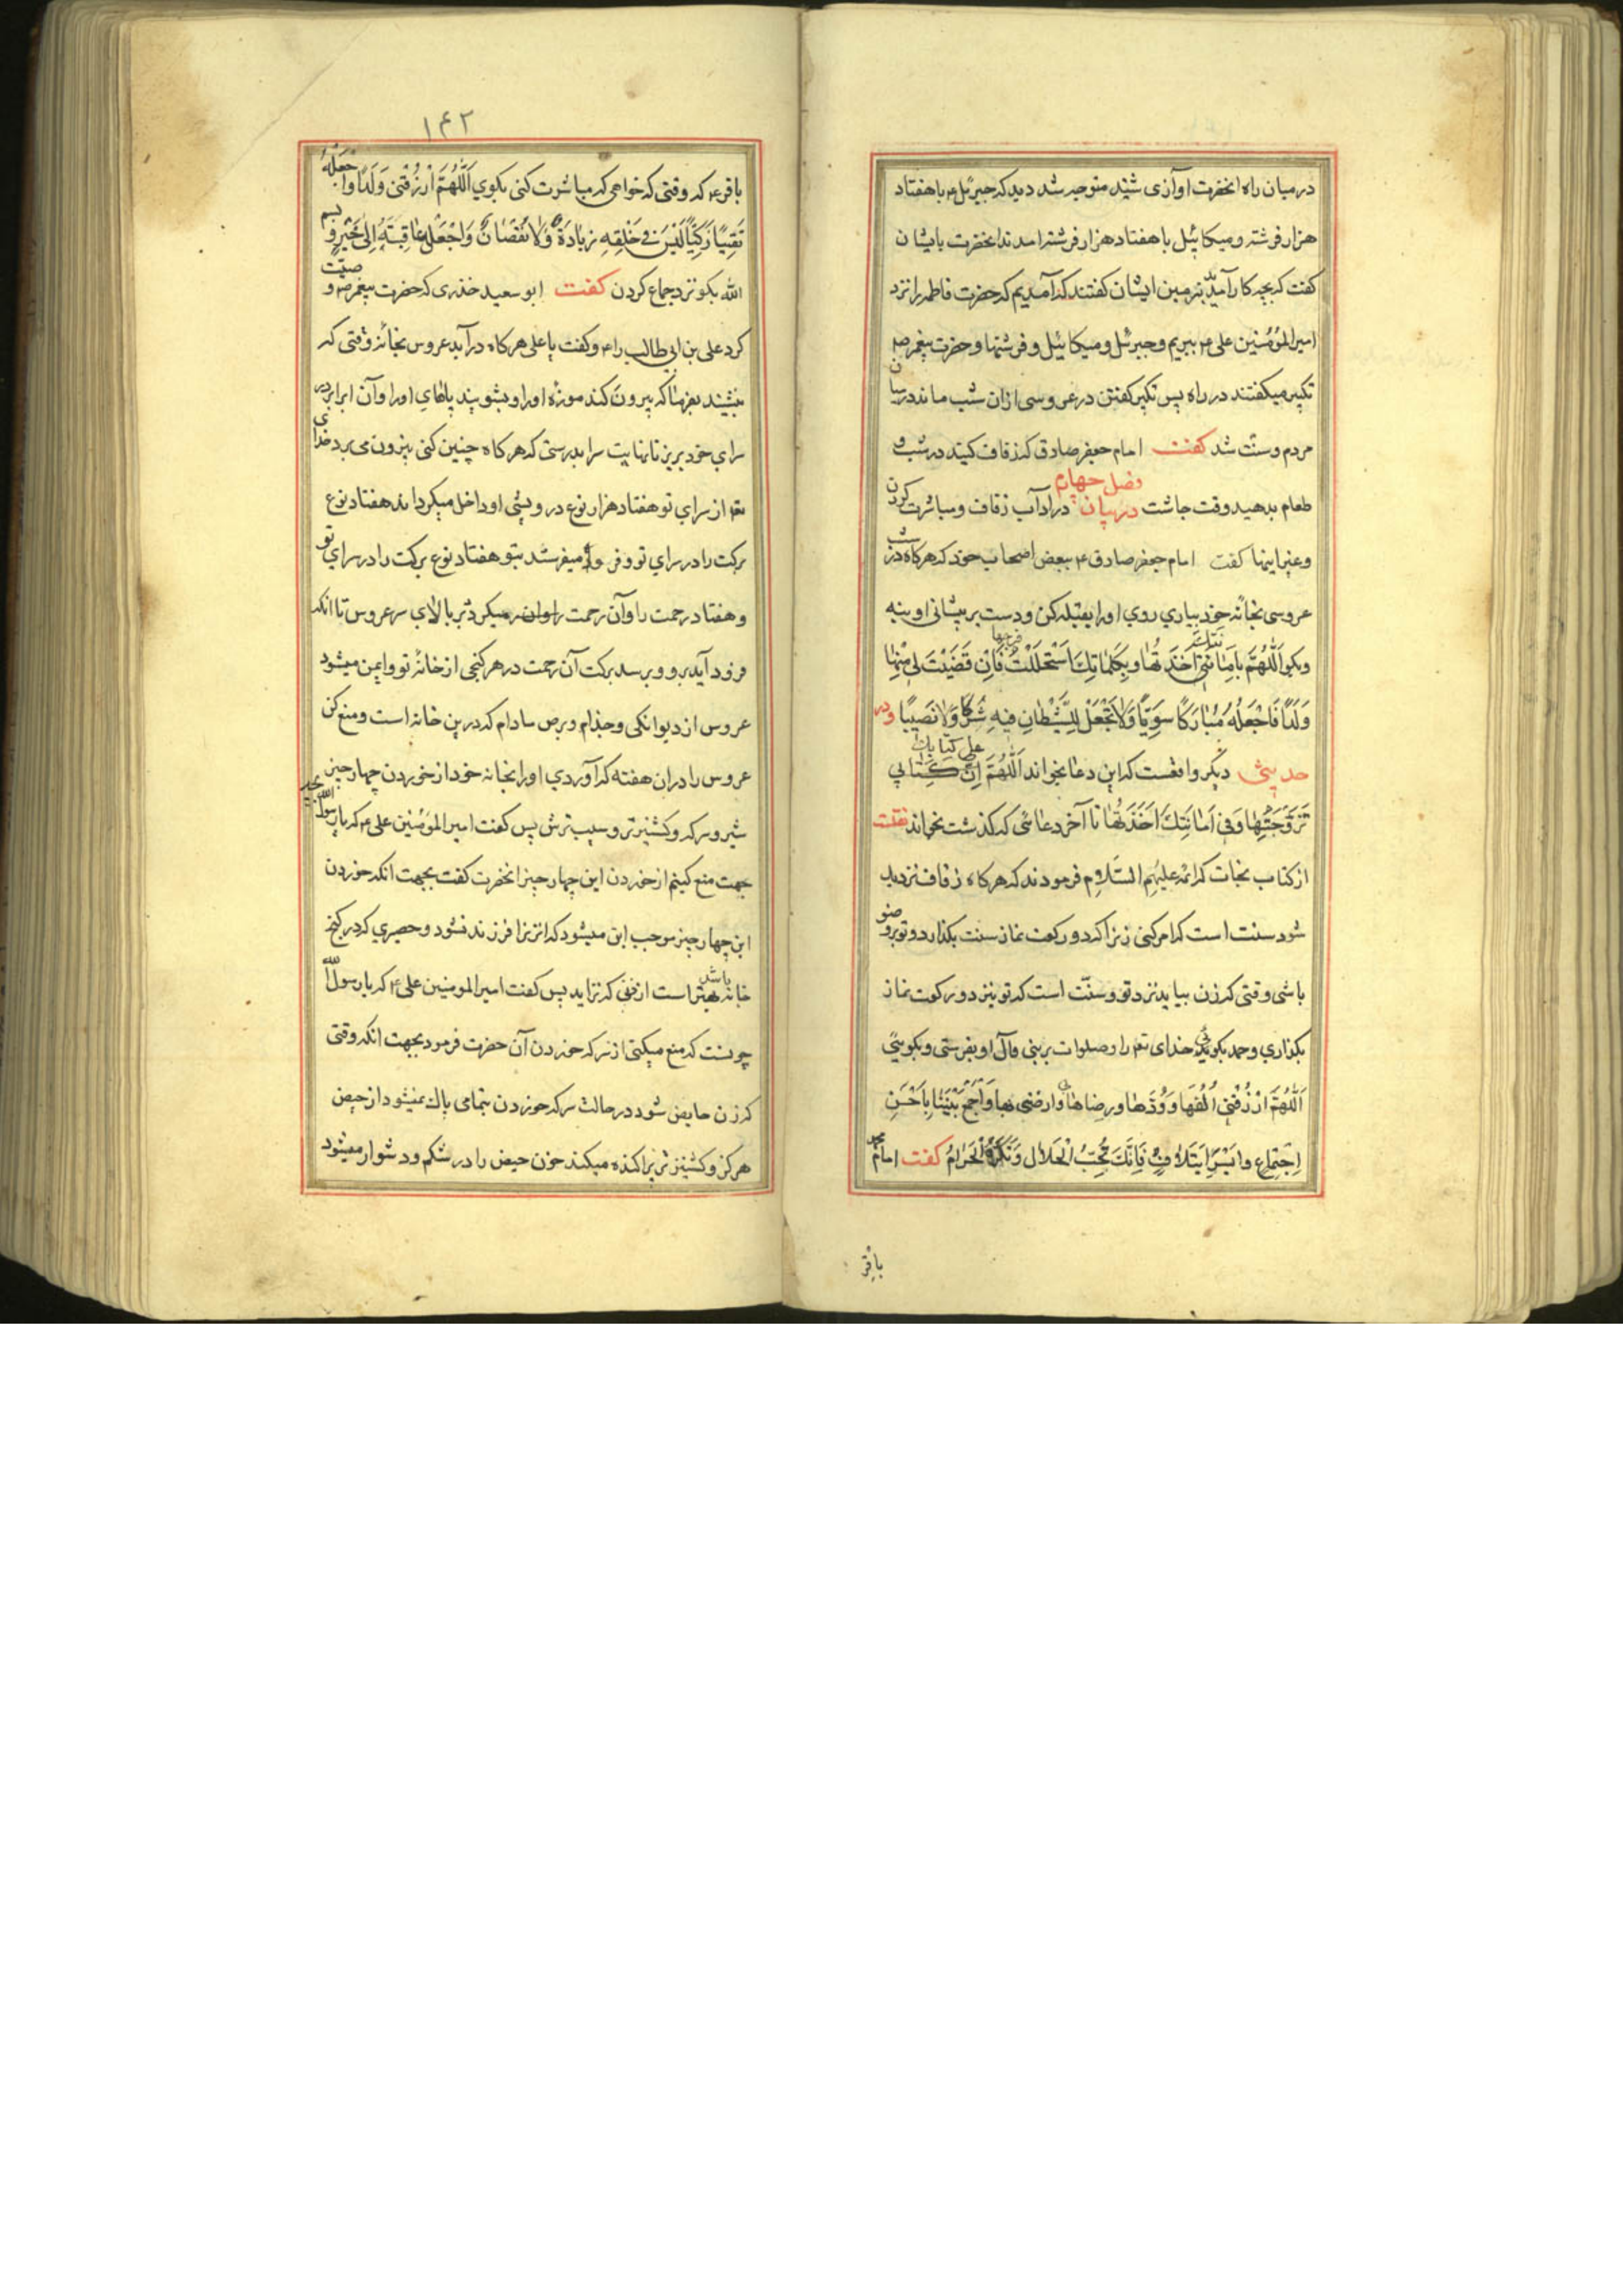 درمیان راه انحضرت اوازی شنید متوجه شد دید که جبرئیل ع با هفتاد
هزار فرشته و میکائیل با هفتاد هزار فرشته امدند انحضرت بایشان
کفت که بچه کار آمدید بزمین ایشان کفتند که آمدیم که حضرت فاطمه را نزد
امیرالمؤمنین علی ع ببریم و جبرئیل و میکائیل و فرشتها و حضرت پیغمبر ص
تکبیر میکفتند در راه پس تکبیر کفتن در عروسی ازان شب ماند درمیان
مردم و سنت شد کفت امام جعفر صادق که زفاف کنید در شب و
طعام بدهید وقت چاشت فصل چهارم در بیان در اداب زفاف و مباشرت کردن
و غیر اینها کفت امام جعفر صادق ع ببعض اصحاب خود که هرکاه در شب
عروسی بخانه خود بیاری روی او را بقبله کن و دست بر پیشانی او بنه
و بکو اَللّهُمَّ بِاَمانَتِكَ اَخَذْتُها وَ بِكَلِماتِكَ اسْتَحْلَلْتُ فرجها فَاِنْ قَضَيْتَ لي مِنْها
وَلَدًا فَاجْعَلْهُ مُبارَكًا سَوِيًّا وَلا تَجْعَلْ لِلشَّيْطانِ فيهِ شِرْكًا وَلا نَصيبًا و در
حدیثی دیکر واقعست که این دعا بخواند اَللّهُمَّ على كتابك
تَزَوَّجْتُها وَفي اَمانَتِكَ اَخَذْتُها تا آخر دعائی که کذشت بخواند نقلست
از کتاب نجات که ائمه علیهم السّلام فرمودند که هرکاه زفاف نزدیک
شود سنت است که امر کنی زنرا که دو رکعت نماز سنت بکذارد و تو بر وضو
باشی وقتی که زن بیاید نزد تو و سنّت است که تو نیز دو رکعت نماز
بکذاری و حمد بکوئی خدای تع را و صلوات بر نبی و آل او بفرستی و بکویی
اَللّهُمَّ ارْزُقْني اُلْفَها وَ وُدَّها و رضاها وارضنی بها وَاجْمَعْ بَيْنَنا بِاَحْسَنِ
اِجْتِماعٍ وايسر ايتلاف فَاِنَّكَ تُحِبُّ الْحَلالَ وَتَكْرَهُ الْحَرامَ کفت امام محمد
باقر
۱۴۲
باقر ع که وقتی که خواهی که مباشرت کنی بکوی اَللّهُمَّ ارْزُقْني وَلَدًا وَاجْعَلْهُ
تَقِيًّا زَكِيًّا لَيْسَ في خَلْقِهِ زِيادَةٌ وَلا نُقْصانٌ وَاجْعَلْ عاقِبَتَهُ اِلى خَيْرٍ و بسم
الله بکو نزد جماع کردن کفت ابو سعید خدری که حضرت پیغمبر ص وصیّت
کرد علی بن ابی طالب را ع و کفت یا علی هرکاه درآید عروس بخانه وقتی که
بنشیند بفرما که بیرون کند موزه او را و بشویند پاهای او را و آن اب را بر در
سرای خود بریز تا نهایت سرا بدرستی که هرکاه چنین کنی بیرون می برد خدای
تع از سرای تو هفتاد هزار نوع درویشی و داخل میکرداند هفتاد نوع
برکت را در سرای تو و فرو میفرستد بتو هفتاد نوع برکت را در سرای تو
و هفتاد رحمت را و آن رحمت میکردد بر بالای سر عروس تا انکه
فرود آید برو و برسد برکت آن رحمت در هر کنجی از خانهٔ تو و ایمن میشود
عروس از دیوانکی و جذام و برص مادام که درین خانه است و منع کن
عروس را دران هفته که آوردی او را بخانه خود از خوردن چهار چیز
شیر و سرکه و کشنیز تر و سیب ترش پس کفت امیرالمؤمنین علی ع که یا رسول الله بچه
جهت منع کنیم از خوردن این چهار چیز انحضرت کفت بجهت انکه خوردن
این چهار چیز موجب این میشود که انزنرا فرزند نشود و حصیری که در کنج
خانه باشد بهتر است از زنی که نزاید پس کفت امیرالمومنین علی ع که یا رسول الله
چونست که منع میکنی از سرکه خوردن آن حضرت فرمود بجهت انکه وقتی
که زن حایض شود در حالت سرکه خوردن بتمامی پاک نمیشود از حیض
هرکز و کشنیز تر پراکنده میکند خون حیض را در شکم و دشوار میشود